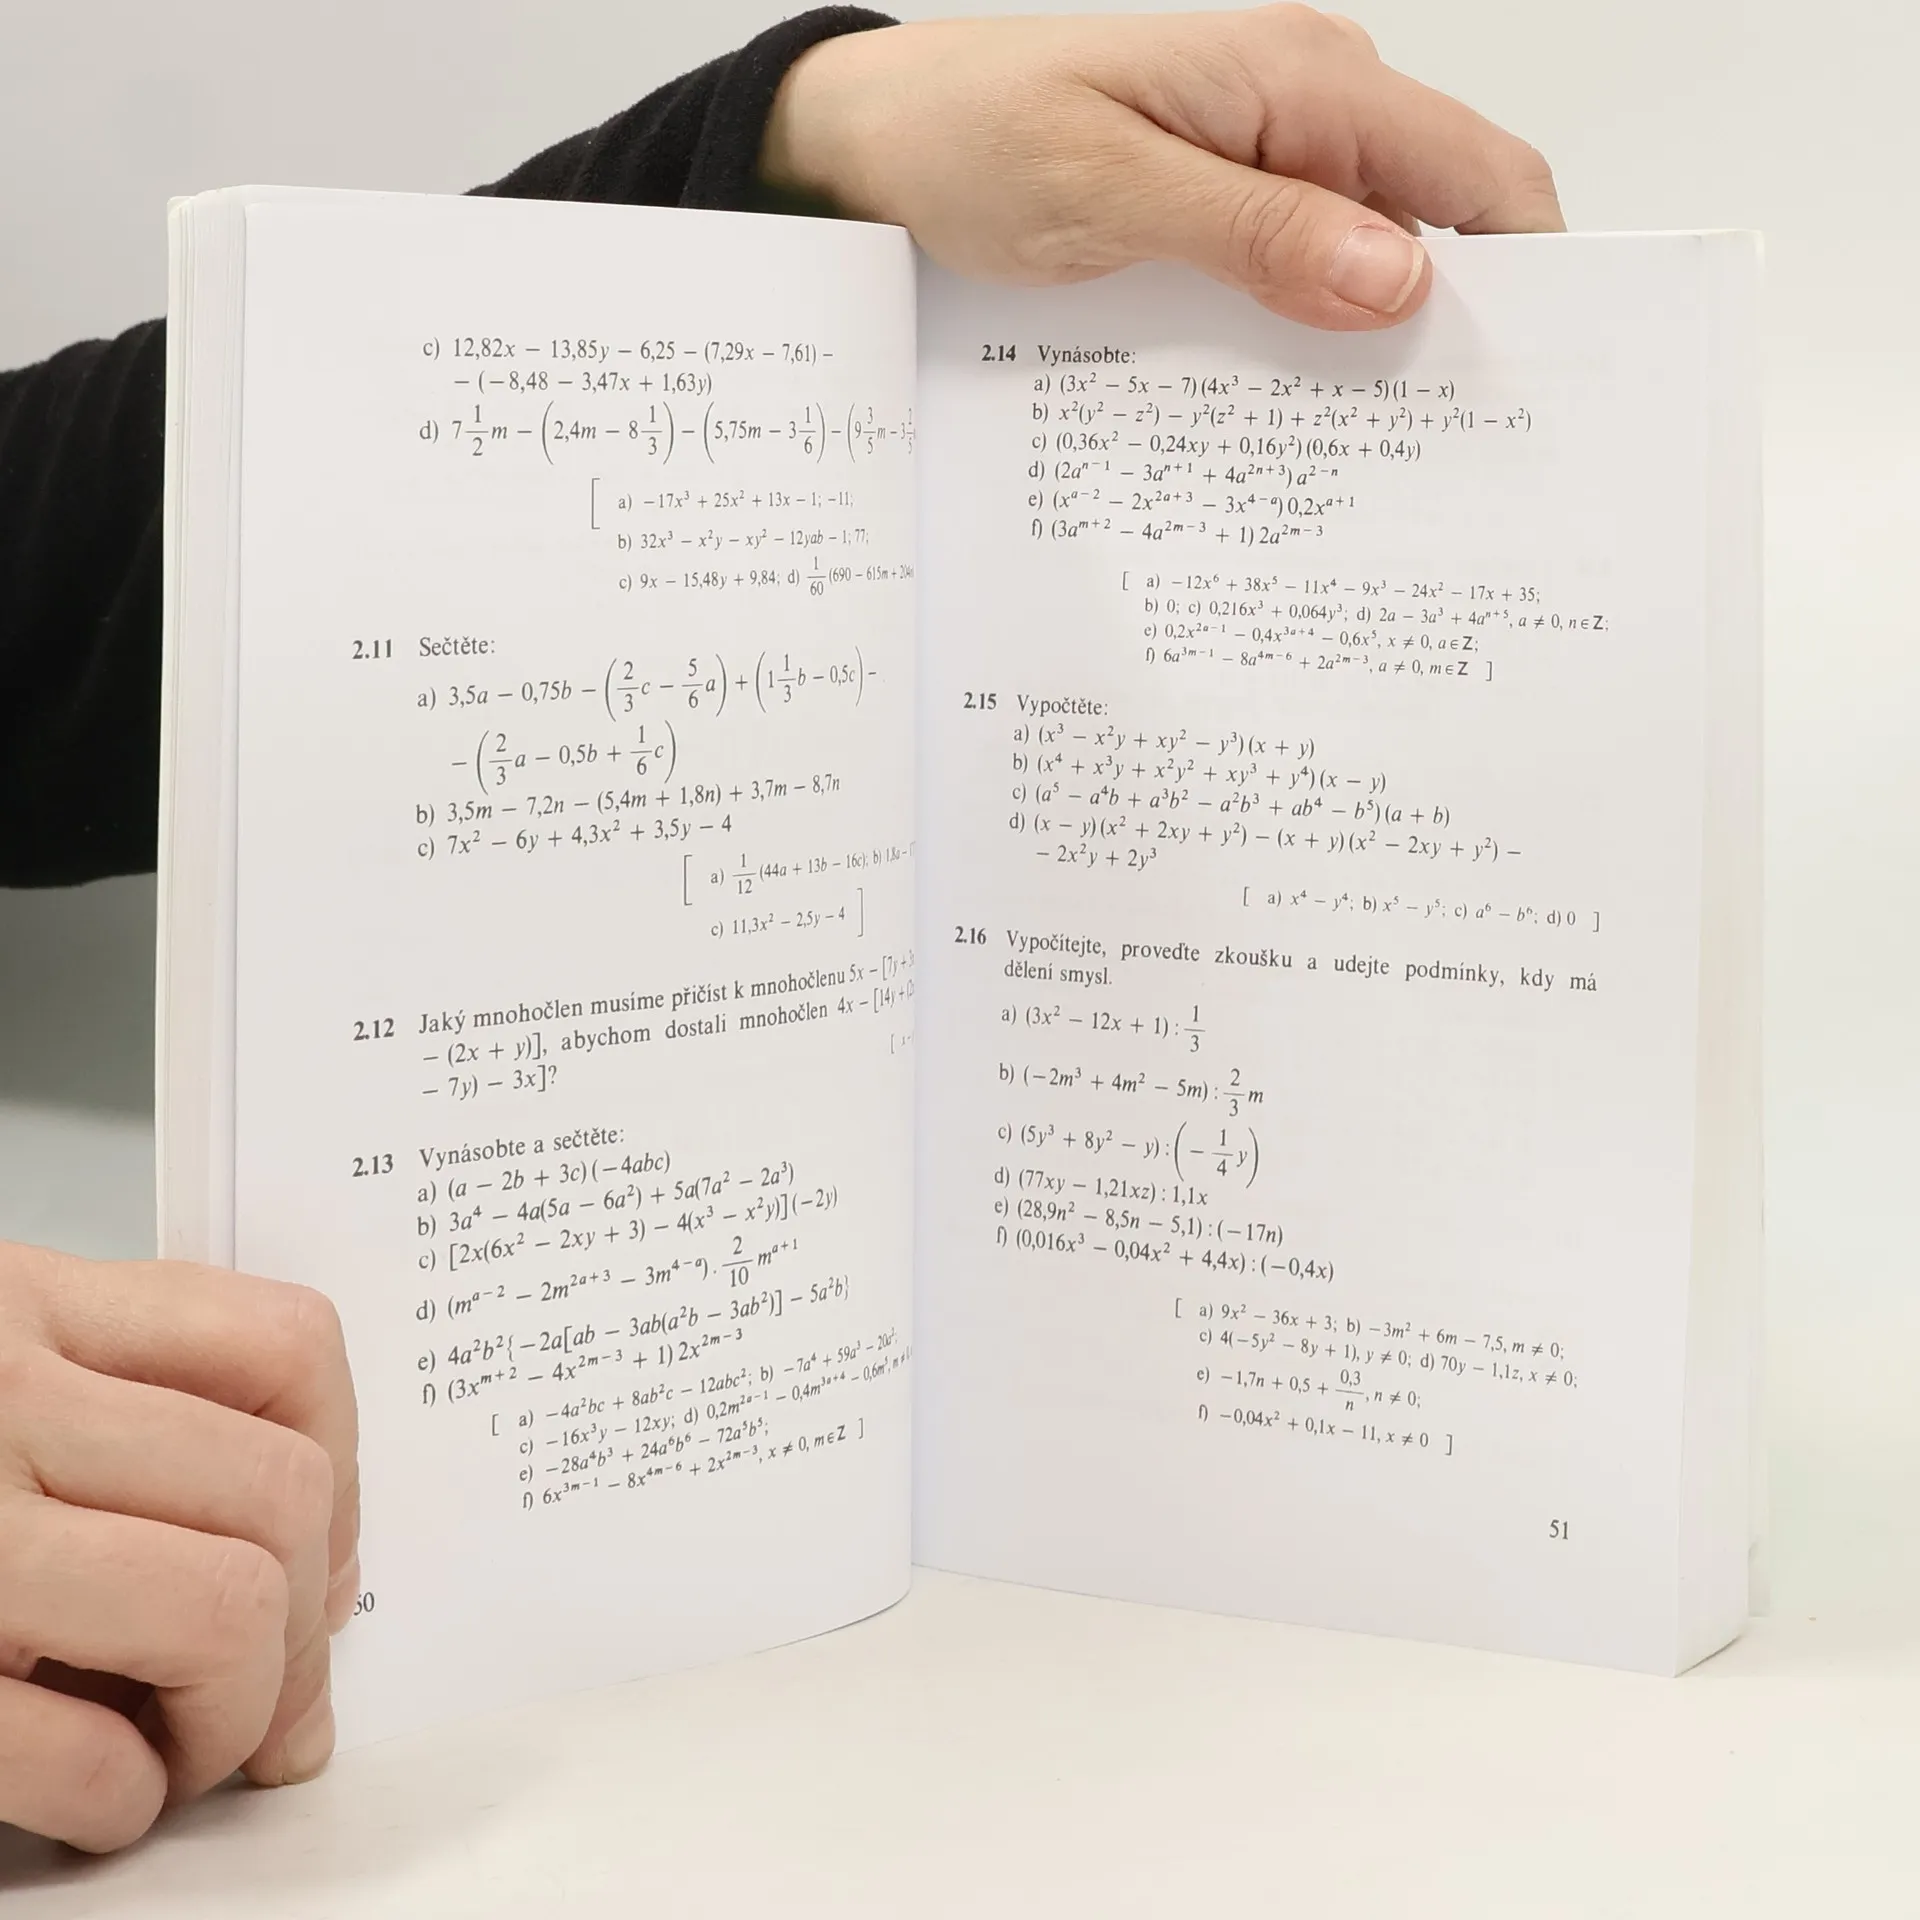 c) 12,82x − 13,85y − 6,25 − (7,29x − 7,61) −
− (−8,48 − 3,47x + 1,63y)
d) 7 1/2 m − (2,4m − 8 1/3) − (5,75m − 3 1/6) − (9 3/5 m − 3
[ a) −17x³ + 25x² + 13x − 1; −11;
b) 32x³ − x²y − xy² − 12yab − 1; 77;
c) 9x − 15,48y + 9,84; d) 1/60 (690 − 615m + 204
2.11 Sečtěte:
a) 3,5a − 0,75b − (2/3 c − 5/6 a) + (1 1/3 b − 0,5c) −
− (2/3 a − 0,5b + 1/6 c)
b) 3,5m − 7,2n − (5,4m + 1,8n) + 3,7m − 8,7n
c) 7x² − 6y + 4,3x² + 3,5y − 4
[ a) 1/12 (44a + 13b − 16c); b) 1,8a −
c) 11,3x² − 2,5y − 4 ]
2.12 Jaký mnohočlen musíme přičíst k mnohočlenu 5x − [7y +
− (2x + y)], abychom dostali mnohočlen 4x − [14y +
− 7y) − 3x]?
[ x −
2.13 Vynásobte a sečtěte:
a) (a − 2b + 3c)(−4abc)
b) 3a⁴ − 4a(5a − 6a²) + 5a(7a² − 2a³)
c) [2x(6x² − 2xy + 3) − 4(x³ − x²y)](−2y)
d) (mᵃ⁻² − 2m²ᵃ⁺³ − 3m⁴⁻ᵃ) . 2/10 mᵃ⁺¹
e) 4a²b²{−2a[ab − 3ab(a²b − 3ab²)] − 5a²b}
f) (3xᵐ⁺² − 4x²ᵐ⁻³ + 1) 2x²ᵐ⁻³
[ a) −4a²bc + 8ab²c − 12abc²; b) −7a⁴ + 59a³ − 20a²;
c) −16x³y − 12xy; d) 0,2m²ᵃ⁻¹ − 0,4m³ᵃ⁺⁴ − 0,6m⁵, m ≠
e) −28a⁴b³ + 24a⁶b⁶ − 72a⁵b⁵;
f) 6x³ᵐ⁻¹ − 8x⁴ᵐ⁻⁶ + 2x²ᵐ⁻³, x ≠ 0, m∈Z ]
50
2.14 Vynásobte:
a) (3x² − 5x − 7)(4x³ − 2x² + x − 5)(1 − x)
b) x²(y² − z²) − y²(z² + 1) + z²(x² + y²) + y²(1 − x²)
c) (0,36x² − 0,24xy + 0,16y²)(0,6x + 0,4y)
d) (2aⁿ⁻¹ − 3aⁿ⁺¹ + 4a²ⁿ⁺³) a²⁻ⁿ
e) (xᵃ⁻² − 2x²ᵃ⁺³ − 3x⁴⁻ᵃ) 0,2xᵃ⁺¹
f) (3aᵐ⁺² − 4a²ᵐ⁻³ + 1) 2a²ᵐ⁻³
[ a) −12x⁶ + 38x⁵ − 11x⁴ − 9x³ − 24x² − 17x + 35;
b) 0; c) 0,216x³ + 0,064y³; d) 2a − 3a³ + 4aⁿ⁺⁵, a ≠ 0, n∈Z;
e) 0,2x²ᵃ⁻¹ − 0,4x³ᵃ⁺⁴ − 0,6x⁵, x ≠ 0, a∈Z;
f) 6a³ᵐ⁻¹ − 8a⁴ᵐ⁻⁶ + 2a²ᵐ⁻³, a ≠ 0, m∈Z ]
2.15 Vypočtěte:
a) (x³ − x²y + xy² − y³)(x + y)
b) (x⁴ + x³y + x²y² + xy³ + y⁴)(x − y)
c) (a⁵ − a⁴b + a³b² − a²b³ + ab⁴ − b⁵)(a + b)
d) (x − y)(x² + 2xy + y²) − (x + y)(x² − 2xy + y²) −
− 2x²y + 2y³
[ a) x⁴ − y⁴; b) x⁵ − y⁵; c) a⁶ − b⁶; d) 0 ]
2.16 Vypočítejte, proveďte zkoušku a udejte podmínky, kdy má
dělení smysl.
a) (3x² − 12x + 1) : 1/3
b) (−2m³ + 4m² − 5m) : 2/3 m
c) (5y³ + 8y² − y) : (− 1/4 y)
d) (77xy − 1,21xz) : 1,1x
e) (28,9n² − 8,5n − 5,1) : (−17n)
f) (0,016x³ − 0,04x² + 4,4x) : (−0,4x)
[ a) 9x² − 36x + 3; b) −3m² + 6m − 7,5, m ≠ 0;
c) 4(−5y² − 8y + 1), y ≠ 0; d) 70y − 1,1z, x ≠ 0;
e) −1,7n + 0,5 + 0,3/n, n ≠ 0;
f) −0,04x² + 0,1x − 11, x ≠ 0 ]
51